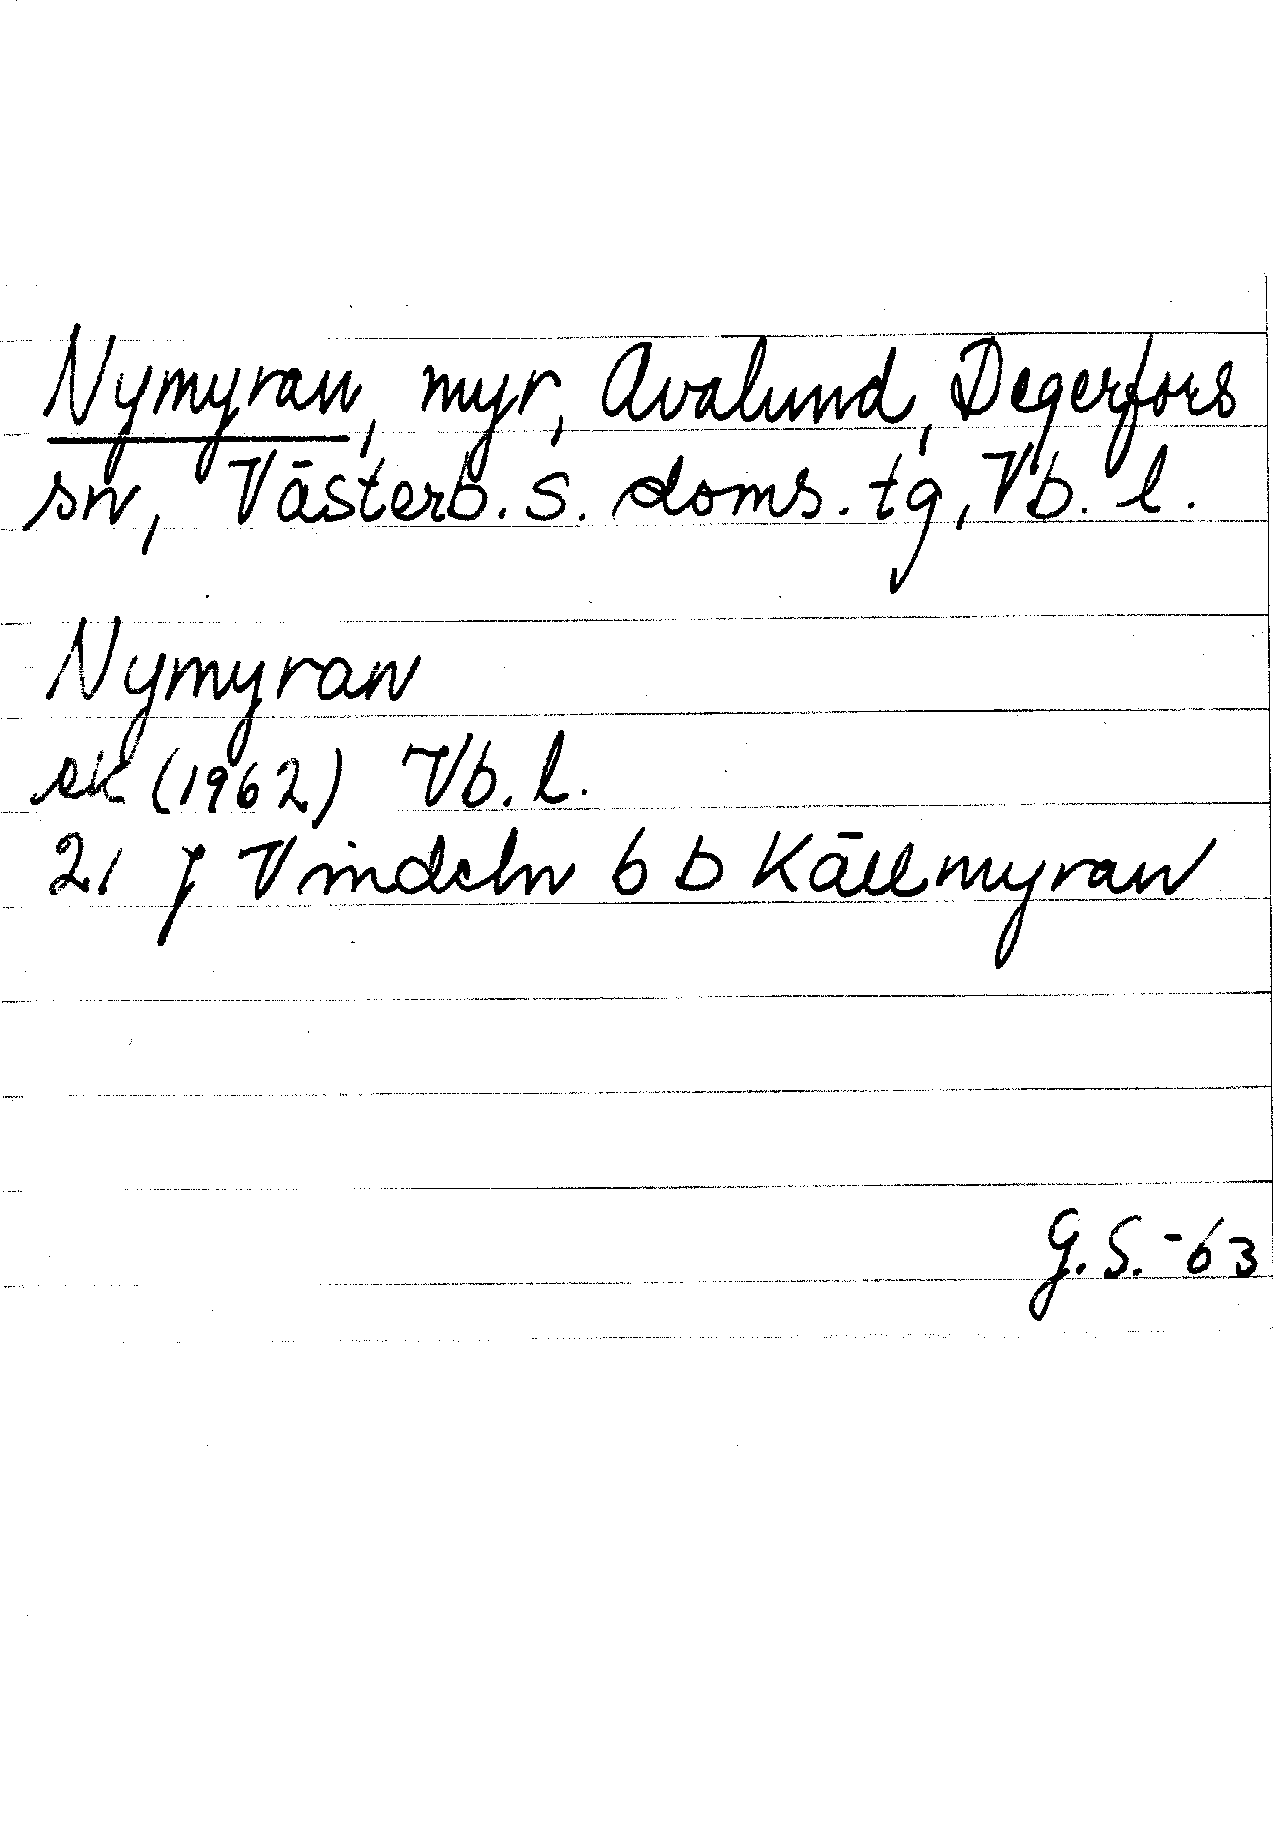 Nymyran, myr, Avalund, Degerfors
sn, Västerb. s. doms. tg, Vb. l.
Nymyran
ek (1962) Vb. l.
21 J Vindeln 6 b Källmyran
G.S.-63